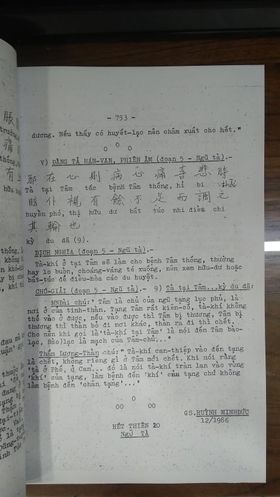 - 793 -
dương. Nếu thấy có huyết-lạc nên châm xuất cho hết."
o o o
V) ĐĂNG TẢ HÁN-VĂN, PHIÊN ÂM (đoạn 5 - Ngũ tà).-
邪在心則病心痛喜悲時
Tà tại Tâm tắc bệnh Tâm thống, hỉ bi
眩仆視有餘不足而調之
huyền phó, thị hữu dư bất túc nhi điều chi
其輸也
kỳ du dã (9).
DỊCH NGHĨA (đoạn 5 - Ngũ tà).-
Tà-khí ở tại Tâm sẽ làm cho bệnh Tâm thống, thường
hay lo buồn, choáng-váng té xuống, nên xem hữu-dư hoặc
bất-túc để điều-hòa các du huyệt.
CHÚ-GIẢI (đoạn 5 - Ngũ tà).- 9 Tà tại Tâm...kỳ du dã:
chú:" Tâm là chủ của ngũ tạng lục phủ, là
nơi ở của tinh-thần. Tạng Tâm rất kiên-cố, tà-khí không
thể vào ở được, nếu vào được thì Tâm bị thương, Tâm bị
thương thì thần bỏ đi nơi khác, thần ra đi thì chết.
Cho nên khi gọi là 'tà-khí tại Tâm' là nói đến Tâm bào-
lạc, Bào-lạc là mạch của Tâm-chủ..."
Thẩm Lương-Thần chú:" Tà-khí can-thiệp vào đến tạng
là chết, không riêng gì ở Tâm mới chết. Khi nói rằng
'tà ở Phế, ở Can... đó là nói tà-khí tràn lan vào vùng
'khí' của tạng, làm bệnh đến 'khí' của tạng chứ không
làm bệnh đến 'chân tạng'..."
GS.HUỲNH MINH ĐỨC
12/1986
HẾT THIÊN 20
NGŨ TÀ